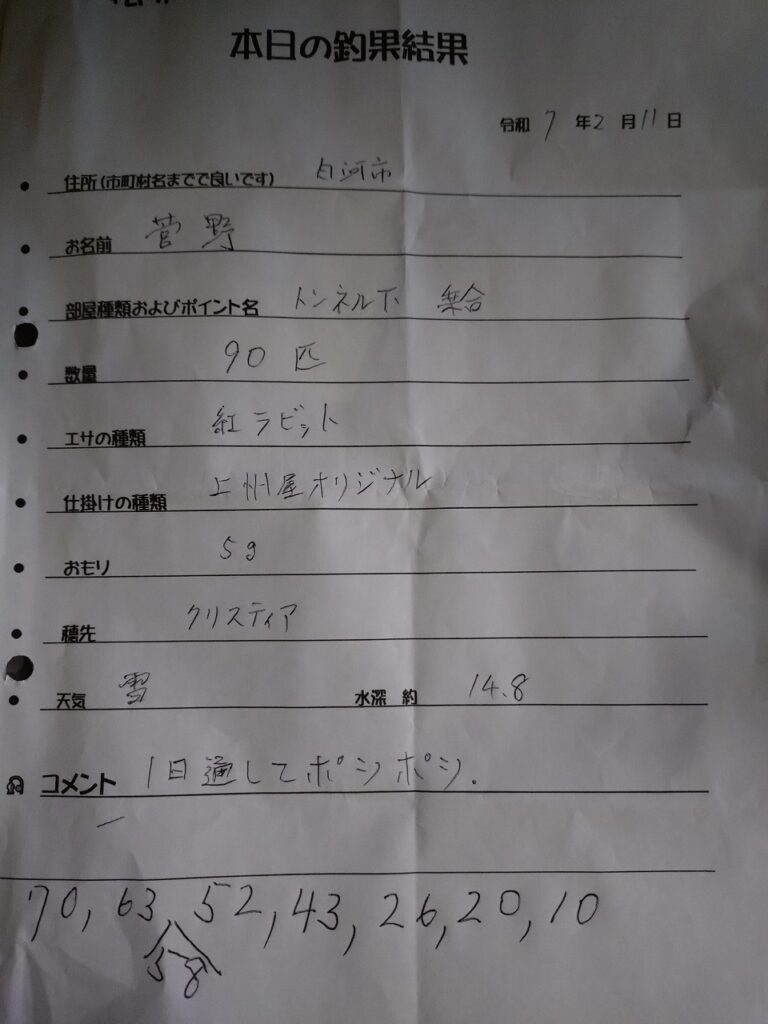 本日の釣果結果
令和 7 年 2 月 11 日
住所(市町村名までで良いです) 白河市
お名前 菅野
部屋種類およびポイント名 トンネル下 乗合
数量 90 匹
エサの種類 紅ラビット
仕掛けの種類 上州屋オリジナル
おもり 5g
穂先 クリスティア
天気 雪 水深 約 14.8
コメント 1日通してポツポツ.
70, 63, 52, 43, 26, 20, 10
58